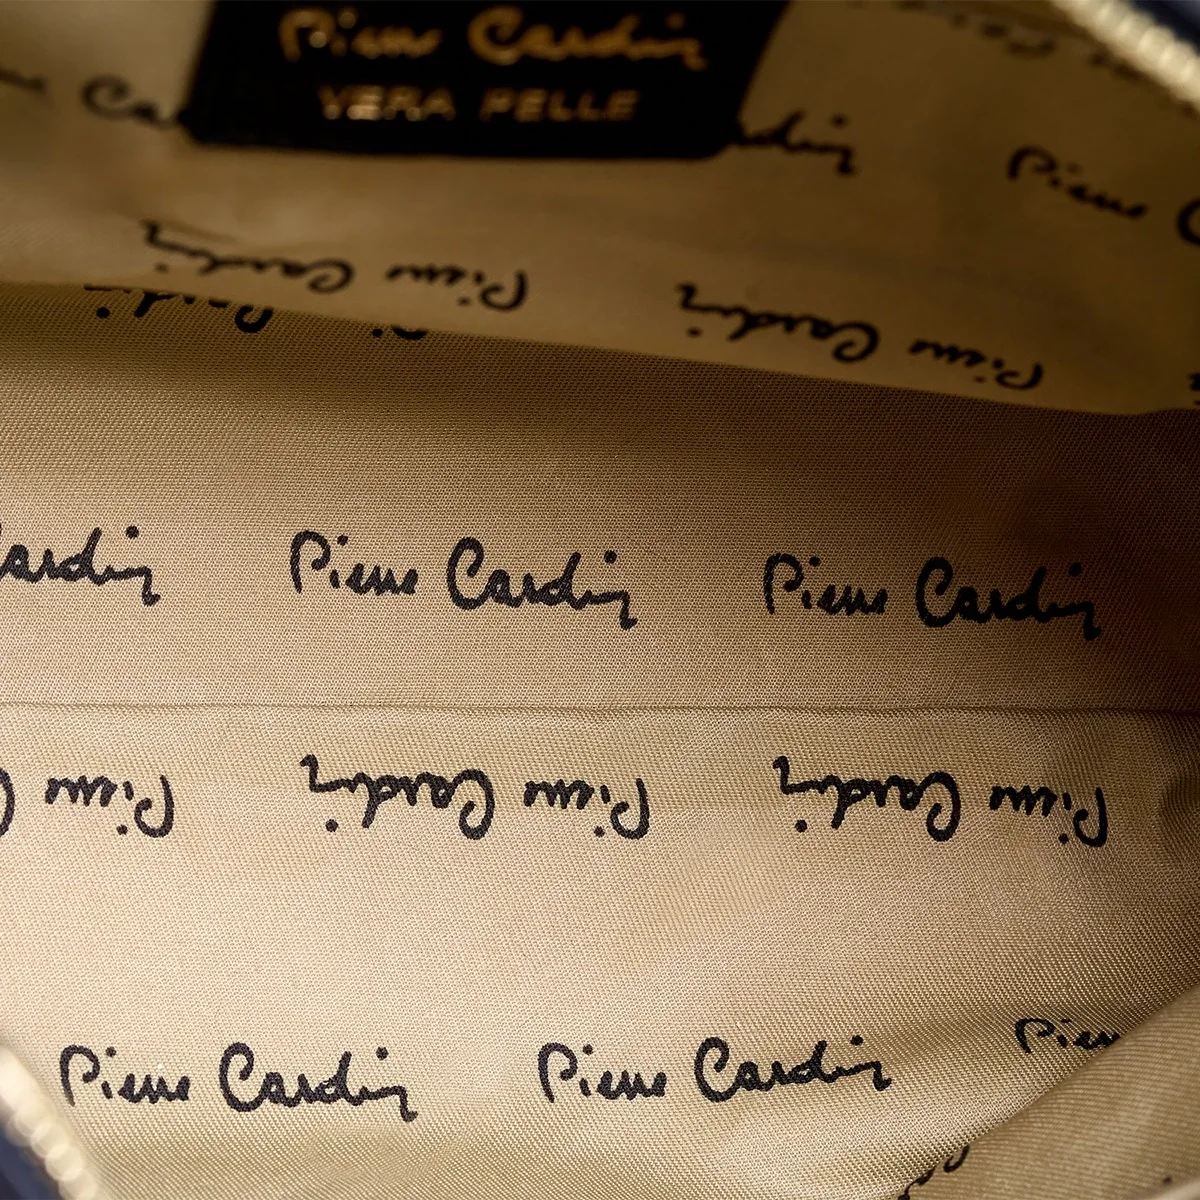 Pierre Cardin
VERA PELLE
Cardin Pierre
Pierre Cardin Pierre Cardin
Cardin Pierre Cardin Pierre Cardin
Pierre Pierre Cardin Pierre Cardin
Pierre Cardin Pierre Cardin Pierre